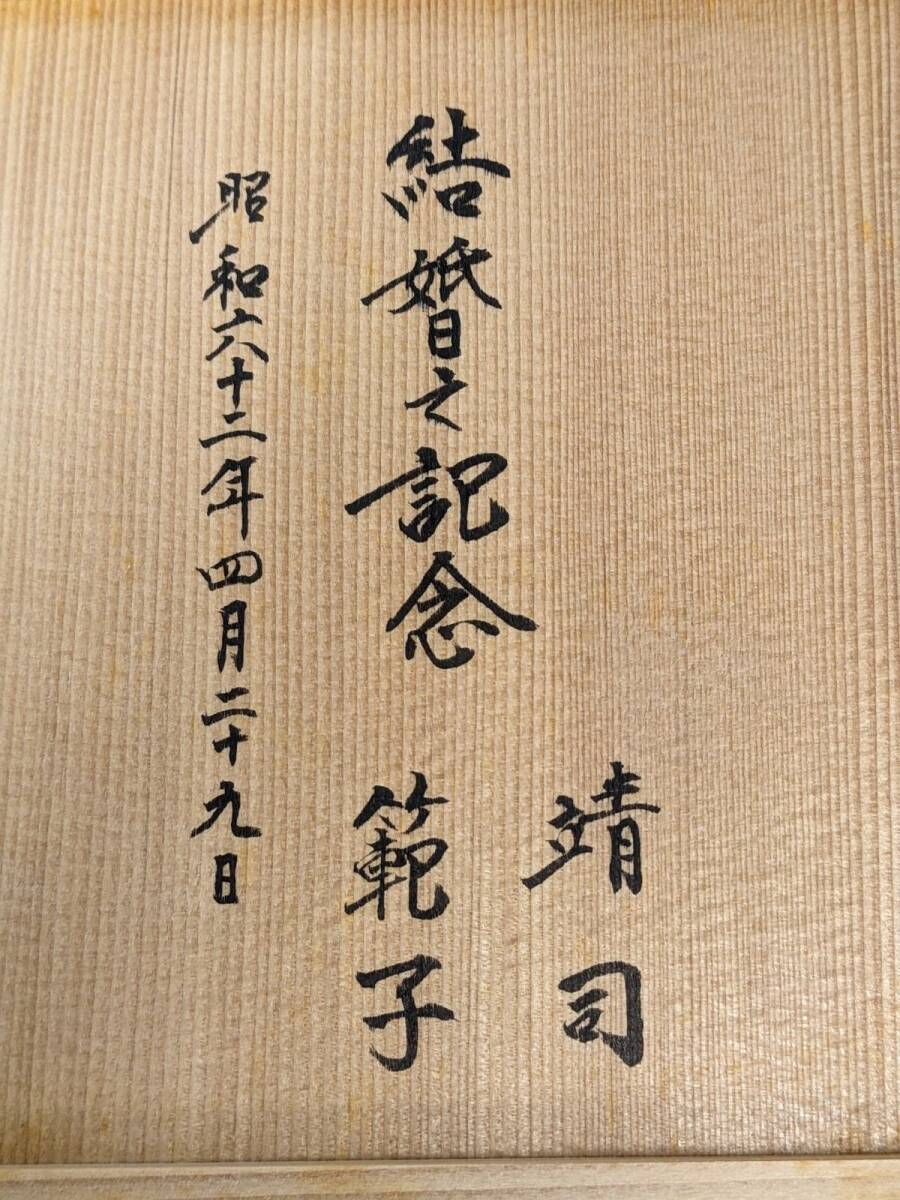 結婚之記念
靖司
範子
昭和六十二年四月二十九日